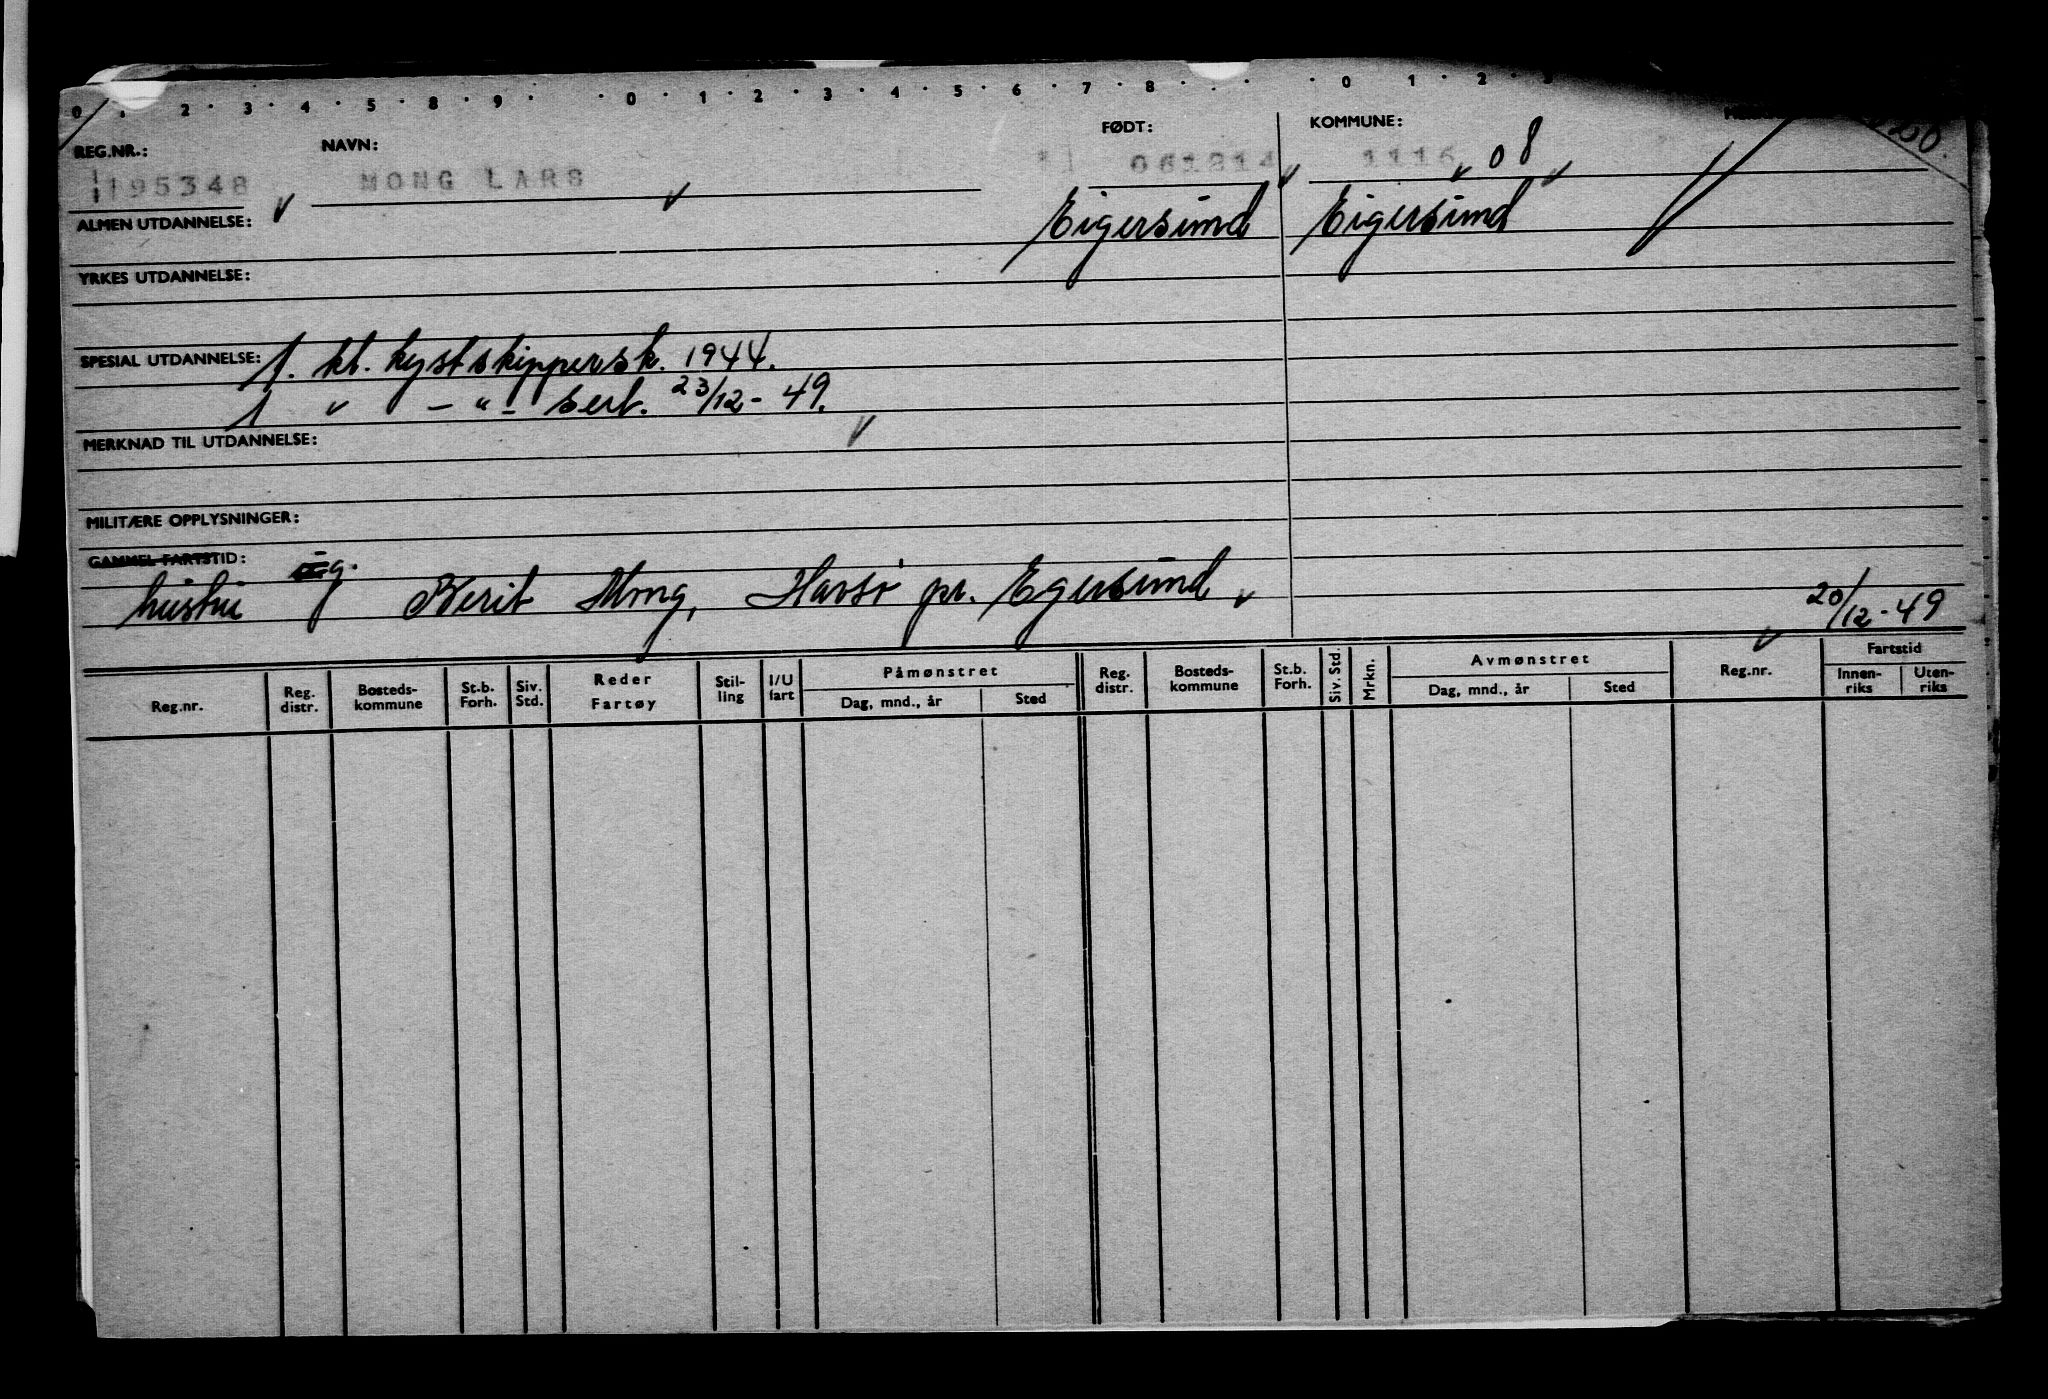 0 . 2 . 3 . 4 . 5 . 8 . 9 . . 0 . 1 . 2 . 3 . 4 . 5 . 6 . 7 . 8 . . . 0 . 1 . 2 . 3
REG.NR.: NAVN: FØDT: KOMMUNE:
195348 MONG LARS 061214 1116 08
ALMEN UTDANNELSE: Eigersund Eigersund
YRKES UTDANNELSE:
SPESIAL UTDANNELSE: 1. kl. kystskippersk. 1944.
1 " - " - sert. 23/12 - 49.
MERKNAD TIL UTDANNELSE:
MILITÆRE OPPLYSNINGER:
GAMMEL FARTSTID:
hustru g. Berit Mong, Havsö pr. Egersund 20/12 - 49
Reg.nr. Reg. distr. Bosteds-kommune St.b. Forh. Siv. Std. Reder Fartøy Stil-ling I/U fart Påmønstret Dag, mnd., år Sted Reg. distr. Bosteds-kommune St.b. Forh. Siv. Std. Mrkn. Avmønstret Dag, mnd., år Sted Reg.nr. Fartstid Innen-riks Uten-riks